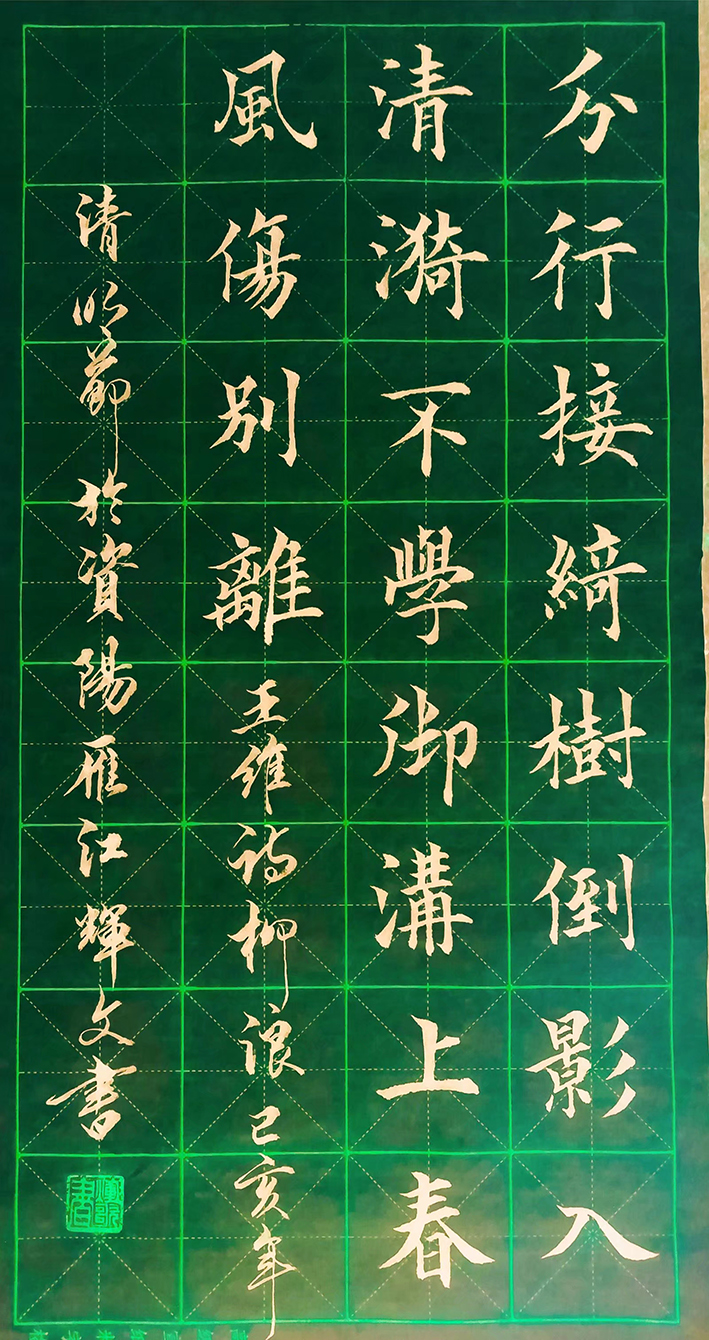 分行接綺樹倒影入
清漪不學御溝上春
風傷別離王維詩柳浪己亥年
清明節於資陽雁江輝文書